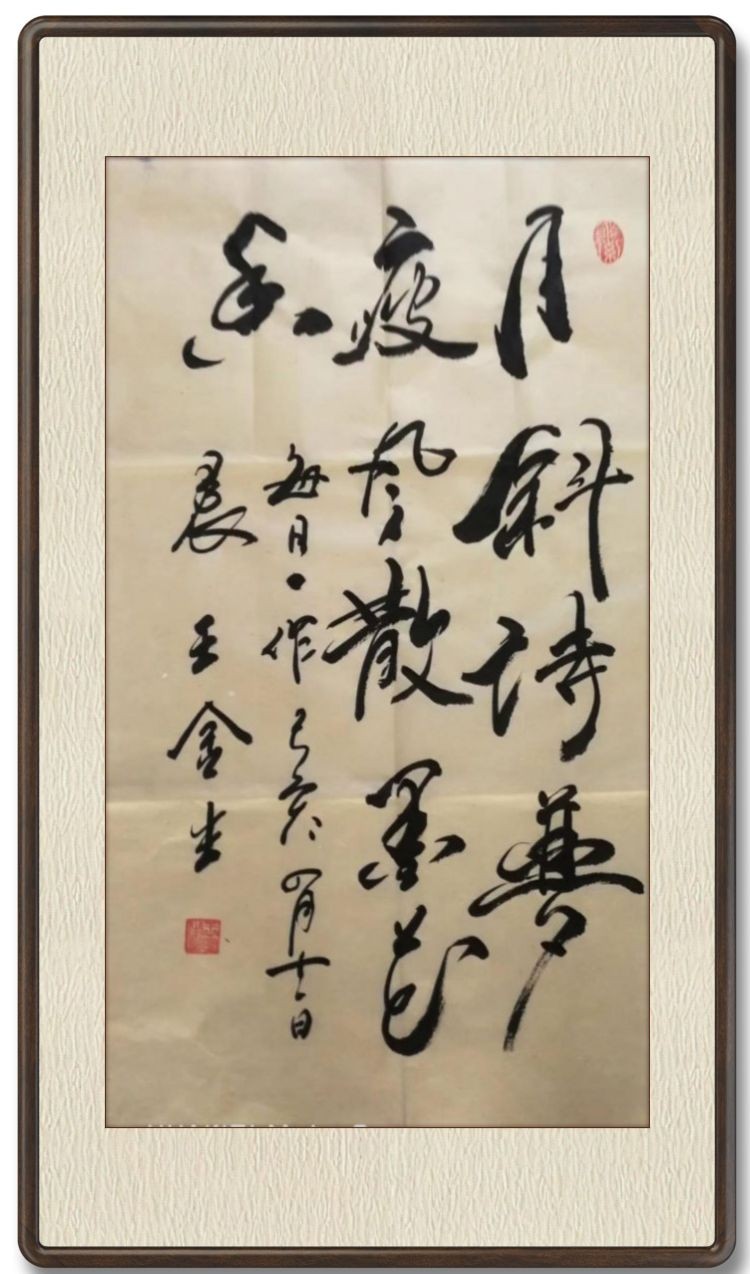 月斜詩夢
瘦風散墨花
香
每日一作己亥四月十一日
晨王金生